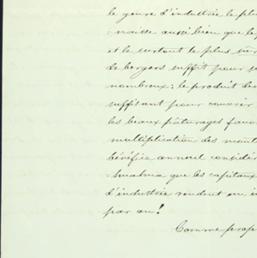 le genre d'industrie le plu
naisse aussi bien que le p
et le surtout le plus sûr
de bergers suffit pour
nombreux; le produit de
suffisant pour couvrir
les beaux pâturages favo
multiplication des mout
bénéfice annuel considér
que les capitaux
d'industrie rendent au
par an!
Comme prop